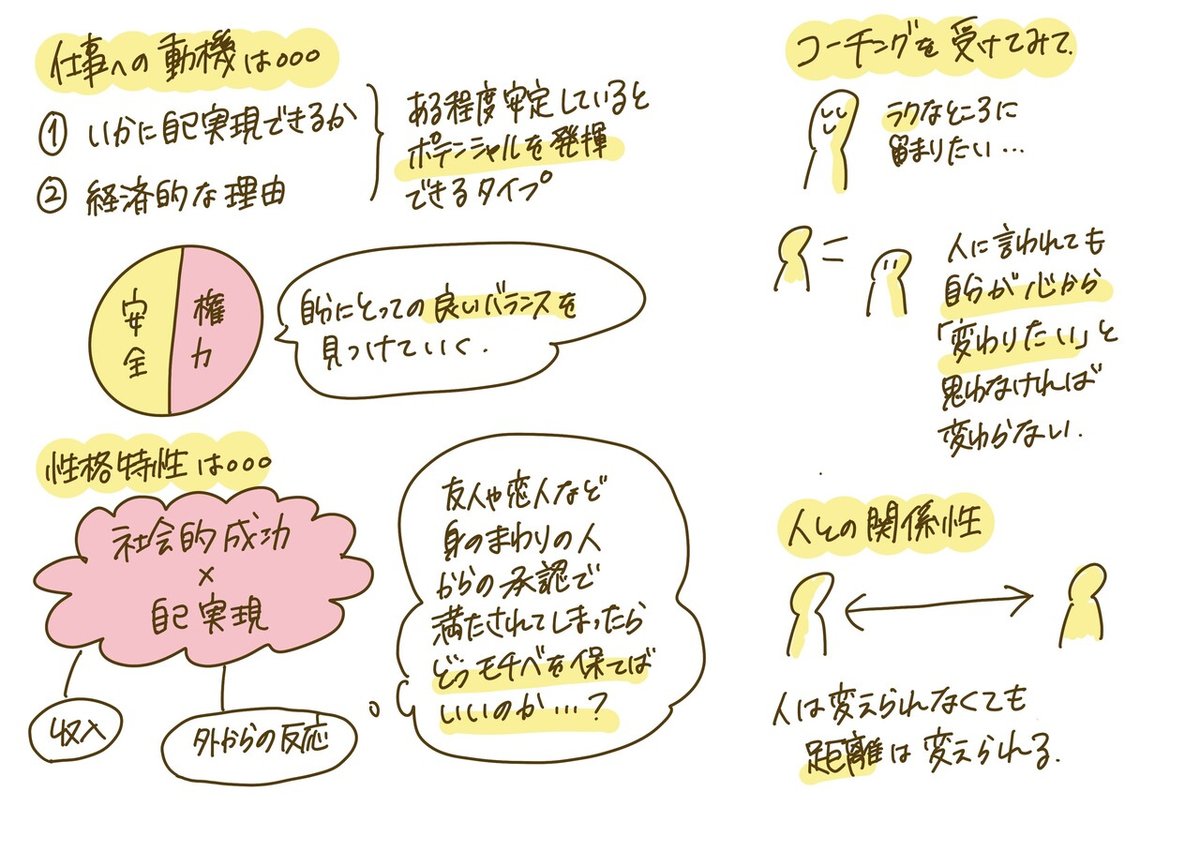 仕事への動機は○○○
① いかに自己実現できるか
② 経済的な理由
ある程度安定していると
ポテンシャルを発揮
できるタイプ
安全
権力
自分にとっての良いバランスを
見つけていく.
性格特性は○○○
社会的成功
×
自己実現
収入
外からの反応
友人や恋人など
身のまわりの人
からの承認で
満たされてしまったら
どうモチベを保てば
いいのか…?
コーチングを受けてみて.
ラクなところに
留まりたい…
人に言われても
自分が心から
「変わりたい」と
思わなければ
変わらない.
人との関係性
人は変えられなくても
距離は変えられる.